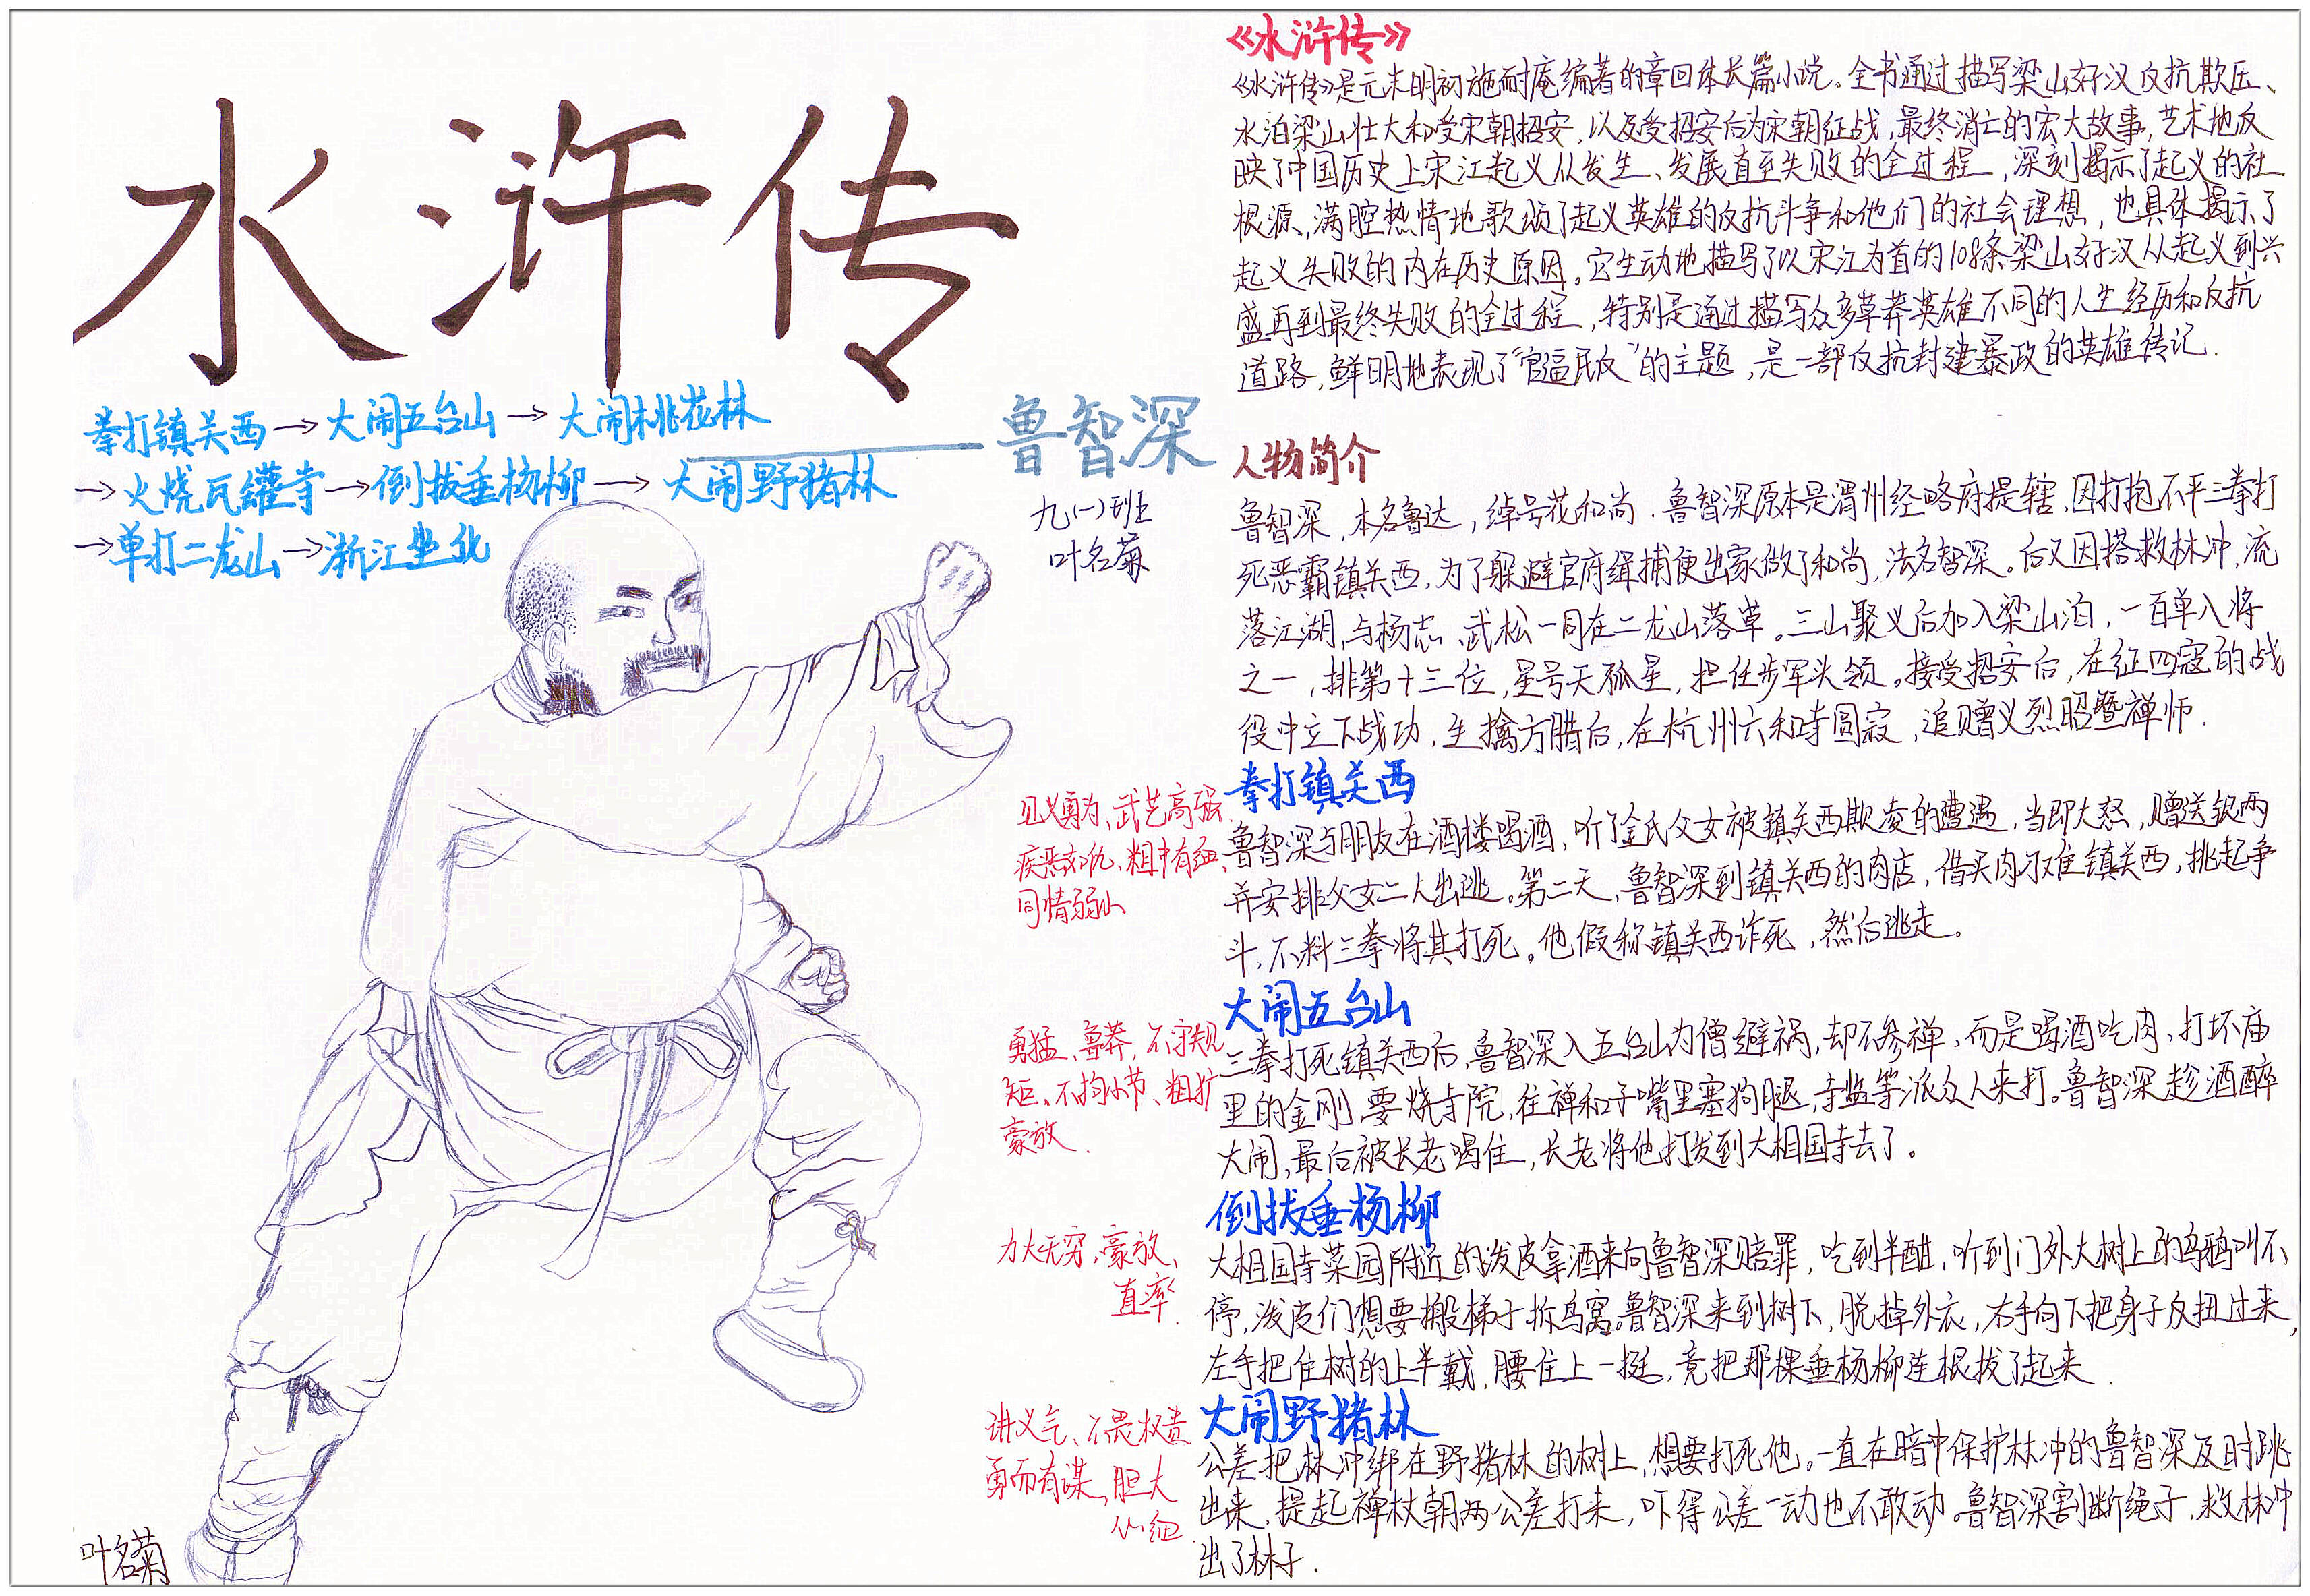 水浒传
——鲁智深
九(一)班
叶名菊
拳打镇关西→大闹五台山→大闹桃花林
→火烧瓦罐寺→倒拔垂杨柳→大闹野猪林
→单打二龙山→浙江坐化
叶名菊
《水浒传》
《水浒传》是元末明初施耐庵编著的章回体长篇小说。全书通过描写梁山好汉反抗欺压、
水泊梁山壮大和受宋朝招安,以及受招安后为宋朝征战,最终消亡的宏大故事,艺术地反
映了中国历史上宋江起义从发生、发展直至失败的全过程,深刻揭示了起义的社
根源,满腔热情地歌颂了起义英雄的反抗斗争和他们的社会理想,也具体揭示了
起义失败的内在历史原因。它生动地描写了以宋江为首的108条梁山好汉从起义到兴
盛再到最终失败的全过程,特别是通过描写众多草莽英雄不同的人生经历和反抗
道路,鲜明地表现了“官逼民反”的主题,是一部反抗封建暴政的英雄传记.
人物简介
鲁智深,本名鲁达,绰号花和尚.鲁智深原本是渭州经略府提辖,因打抱不平三拳打
死恶霸镇关西,为了躲避官府缉捕便出家做了和尚,法名智深。后又因搭救林冲,流
落江湖,与杨志、武松一同在二龙山落草。三山聚义后加入梁山泊,一百单八将
之一,排第十三位,星号天孤星,担任步军头领。接受招安后,在征四寇的战
役中立下战功,生擒方腊后,在杭州六和寺圆寂,追赠义烈昭暨禅师.
拳打镇关西
鲁智深与朋友在酒楼喝酒,听了金氏父女被镇关西欺凌的遭遇,当即大怒,赠送银两
并安排父女二人出逃。第二天,鲁智深到镇关西的肉店,借买肉刁难镇关西,挑起争
斗,不料三拳将其打死。他假称镇关西诈死,然后逃走。
见义勇为、武艺高强、
疾恶如仇、粗中有细、
同情弱小
大闹五台山
三拳打死镇关西后,鲁智深入五台山为僧避祸,却不参禅,而是喝酒吃肉,打坏庙
里的金刚,要烧寺院,往禅和子嘴里塞狗腿,寺监等派众人来打。鲁智深趁酒醉
大闹,最后被长老喝住,长老将他打发到大相国寺去了。
勇猛、鲁莽,不守规
矩、不拘小节、粗犷
豪放.
倒拔垂杨柳
大相国寺菜园附近的泼皮拿酒来向鲁智深赔罪,吃到半酣,听到门外大树上的乌鸦叫不
停,泼皮们想要搬梯子拆鸟窝。鲁智深来到树下,脱掉外衣,右手向下把身子反扭过来,
左手把住树的上半截,腰往上一挺,竟把那棵垂杨柳连根拔了起来.
力大无穷,豪放、
直率.
大闹野猪林
公差把林冲绑在野猪林的树上,想要打死他。一直在暗中保护林冲的鲁智深及时跳
出来,提起禅杖朝两公差打来,吓得公差一动也不敢动.鲁智深割断绳子,救林冲
出了林子.
讲义气、不畏权贵
勇而有谋,胆大
心细